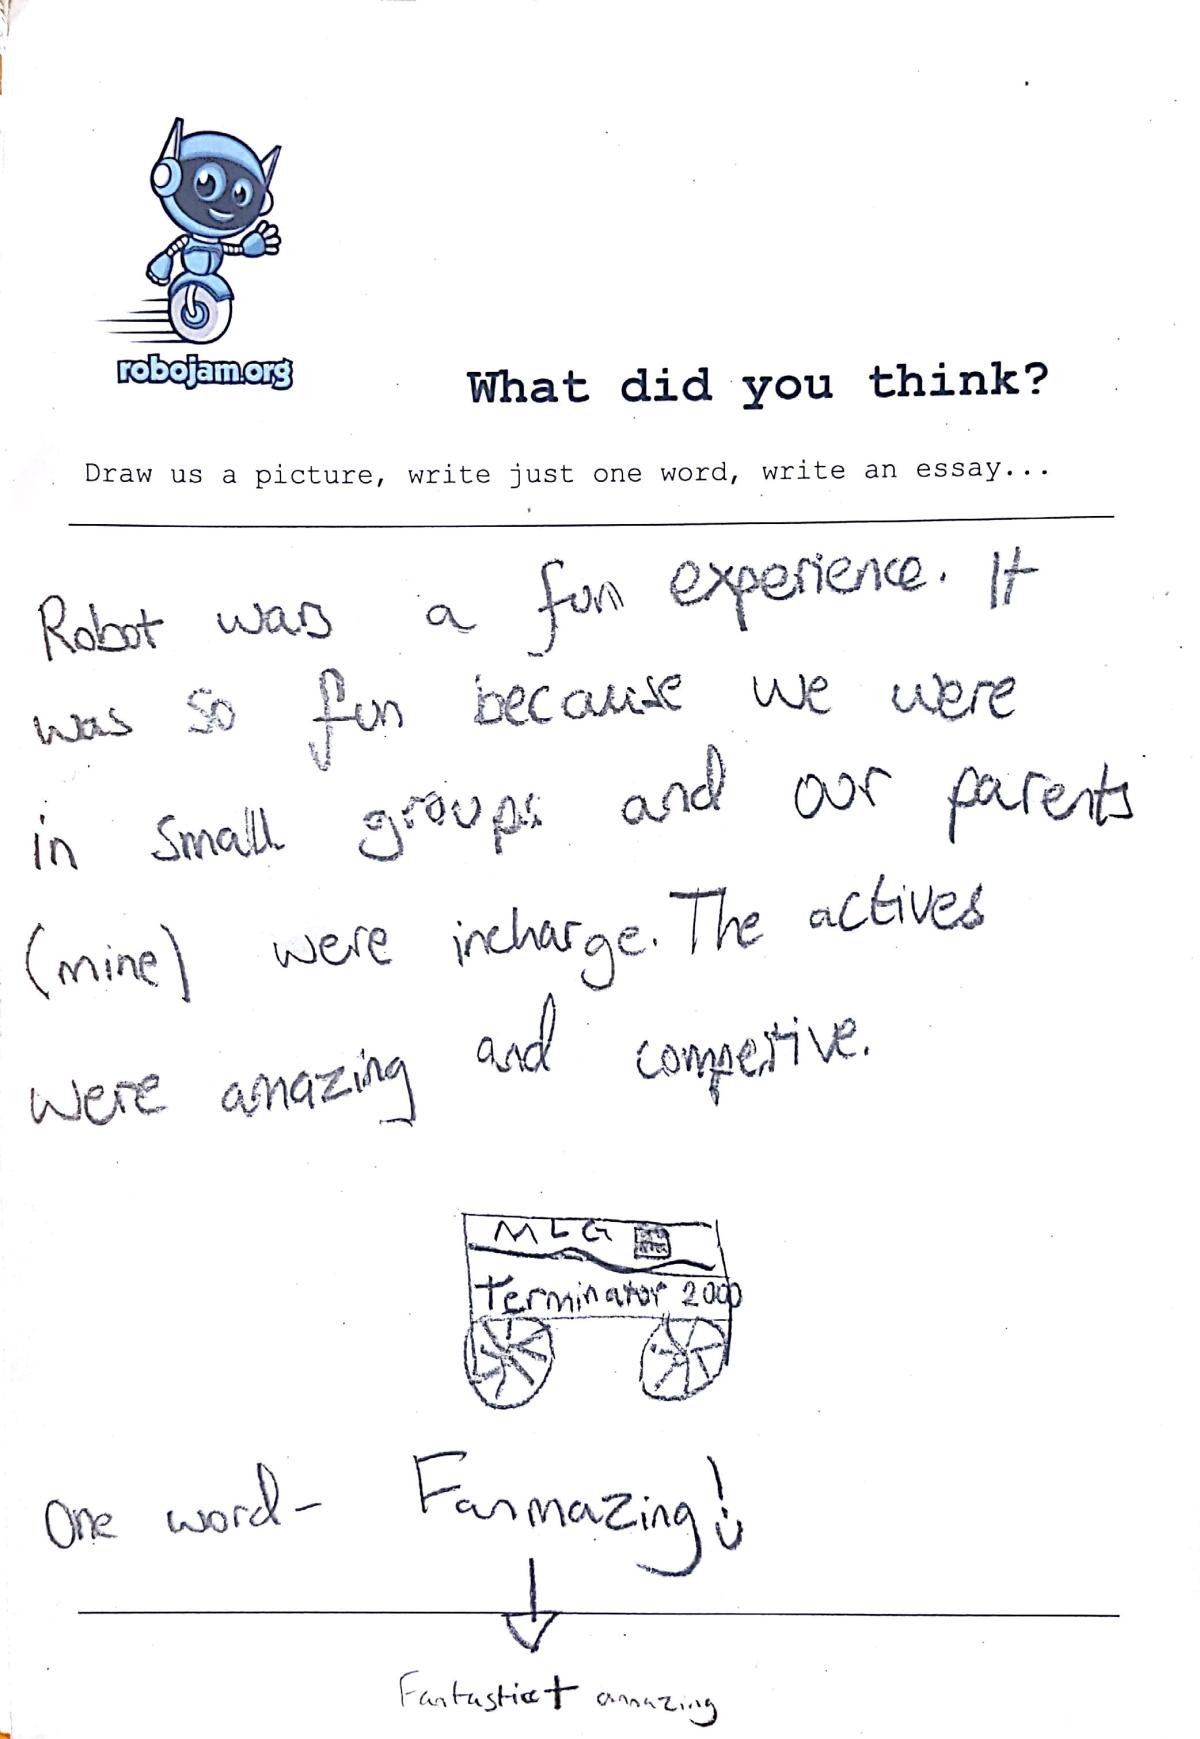 robojam.org
What did you think?
Draw us a picture, write just one word, write an essay...
Robot was a fun experience. It
was so fun because we were
in small groups and our parents
(mine) were incharge. The actives
were amazing and compestive.
MLG
Terminator 2000
One word- Fanmazing!
Fantastic + amazing